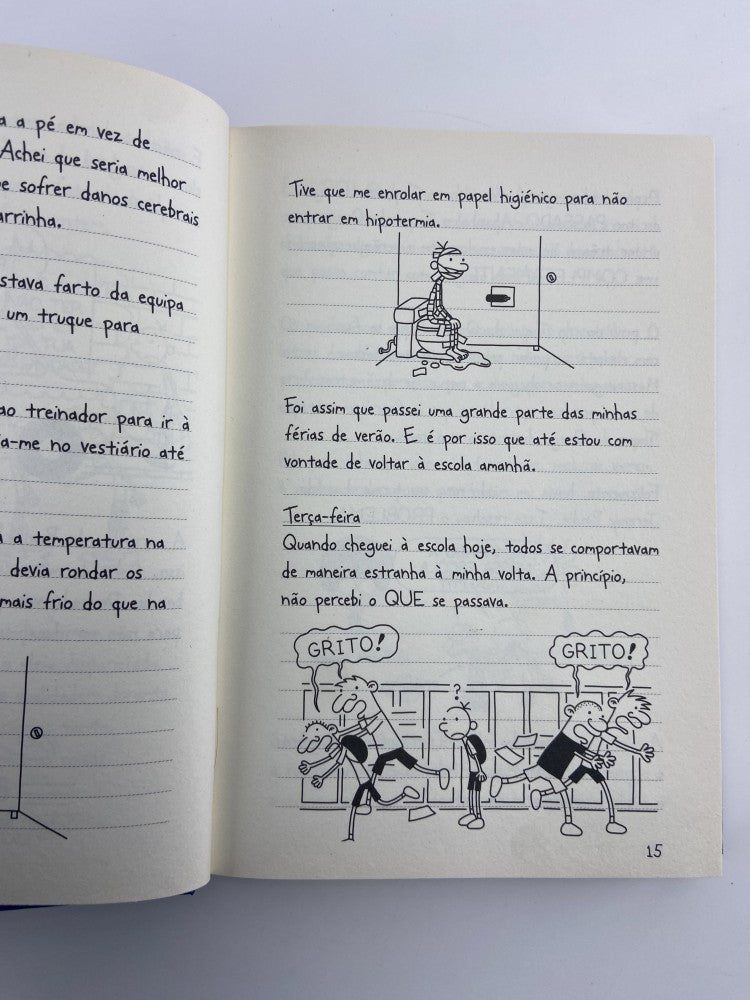 a a pé em vez de
Achei que seria melhor
e sofrer danos cerebrais
arrinha.
stava farto da equipa
um truque para
ao treinador para ir à
a-me no vestiário até
a temperatura na
devia rondar os
mais frio do que na
Tive que me enrolar em papel higiénico para não
entrar em hipotermia.
Foi assim que passei uma grande parte das minhas
férias de verão. E é por isso que até estou com
vontade de voltar à escola amanhã.
Terça-feira
Quando cheguei à escola hoje, todos se comportavam
de maneira estranha à minha volta. A princípio,
não percebi o QUE se passava.
GRITO!
GRITO!
?
15